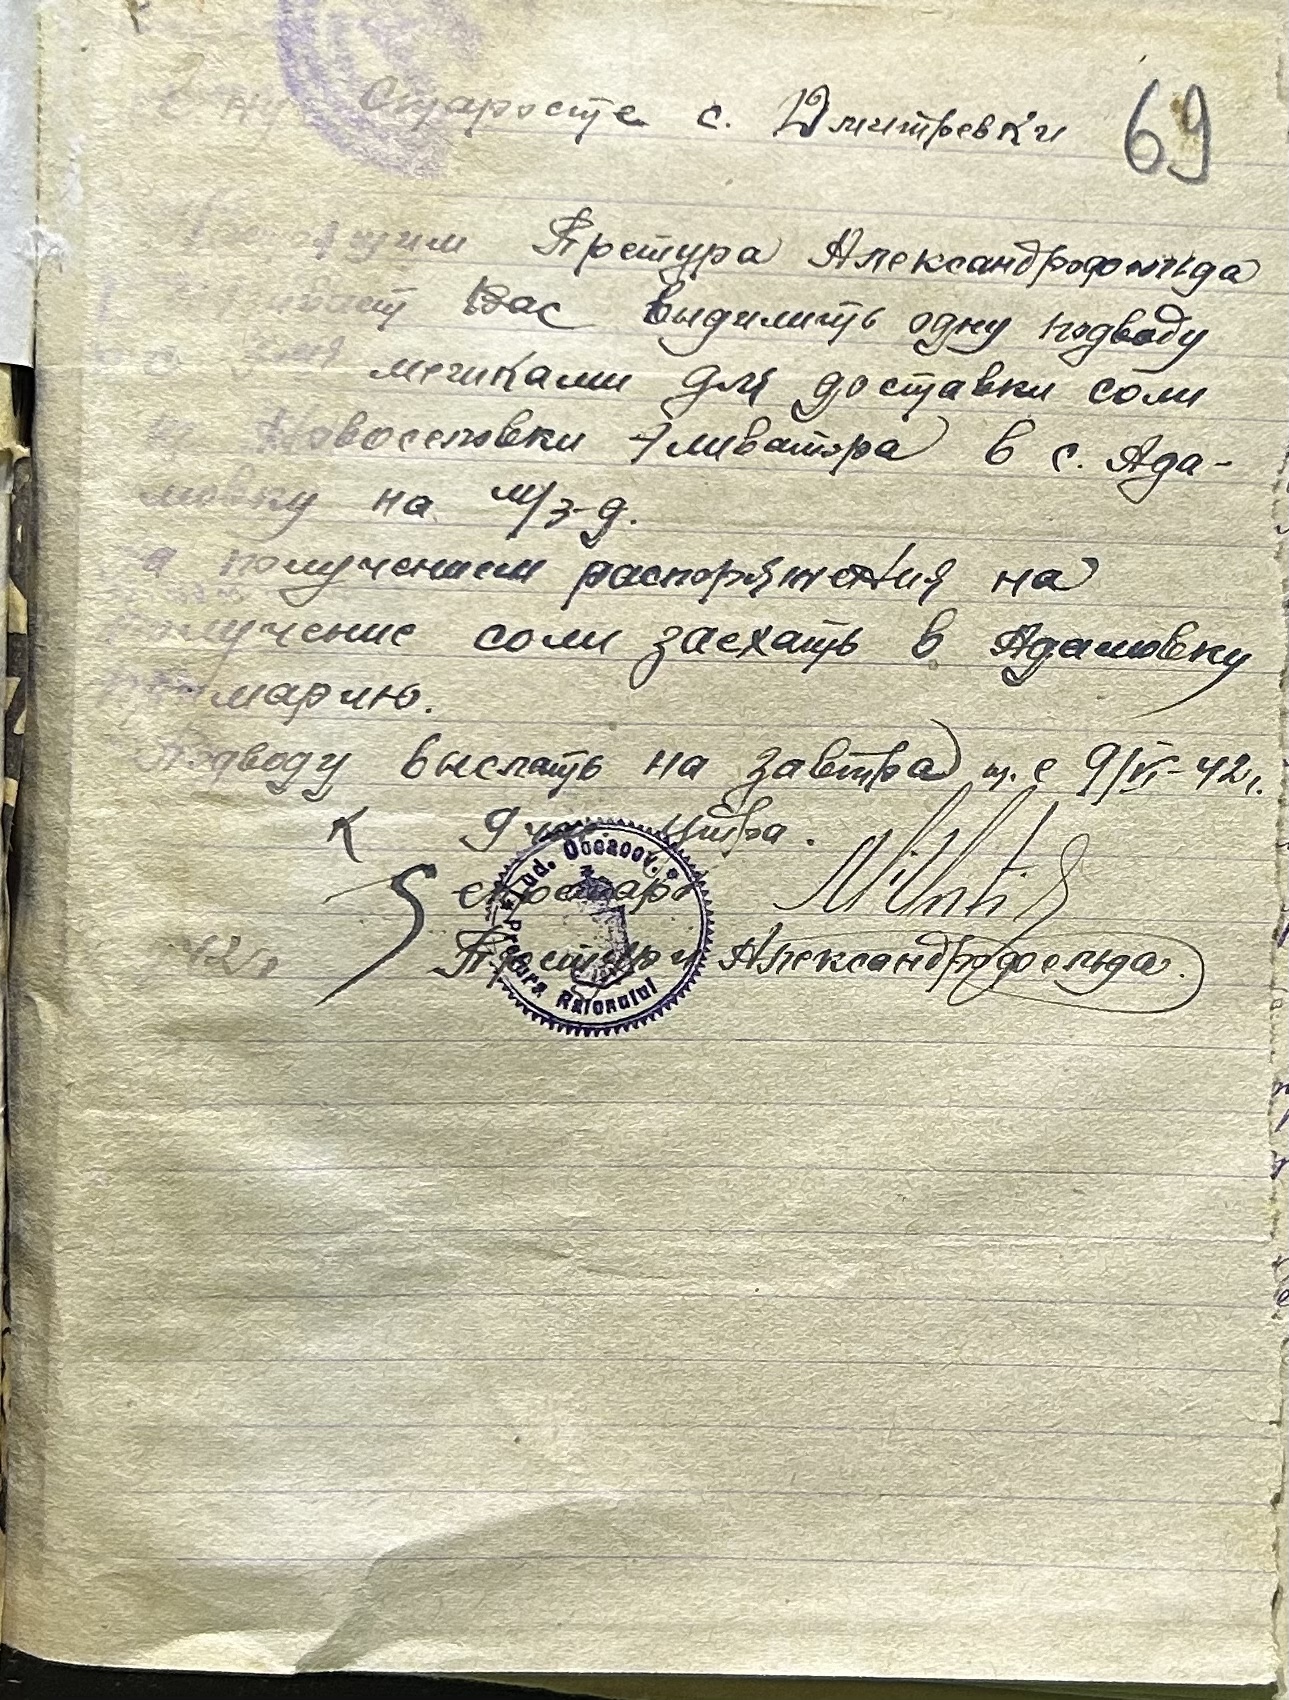 Старосте с. Дмитревки
69
Настоящим Претура Александрофельда
Вас выдилить одну подводу
мешками для доставки соли
Новоселовки Аливатора в с. Ада-
мовку на м/з-д.
За получением распоряжения на
получение соли заехать в Адамовку
примарию.
Подводу выслать на завтра т. е 9/VI-42г.
К 9 час. утра.
Секретарь
Претуры Александрофельда.
42г
Jud. Oceacov.
Pretura Raionului